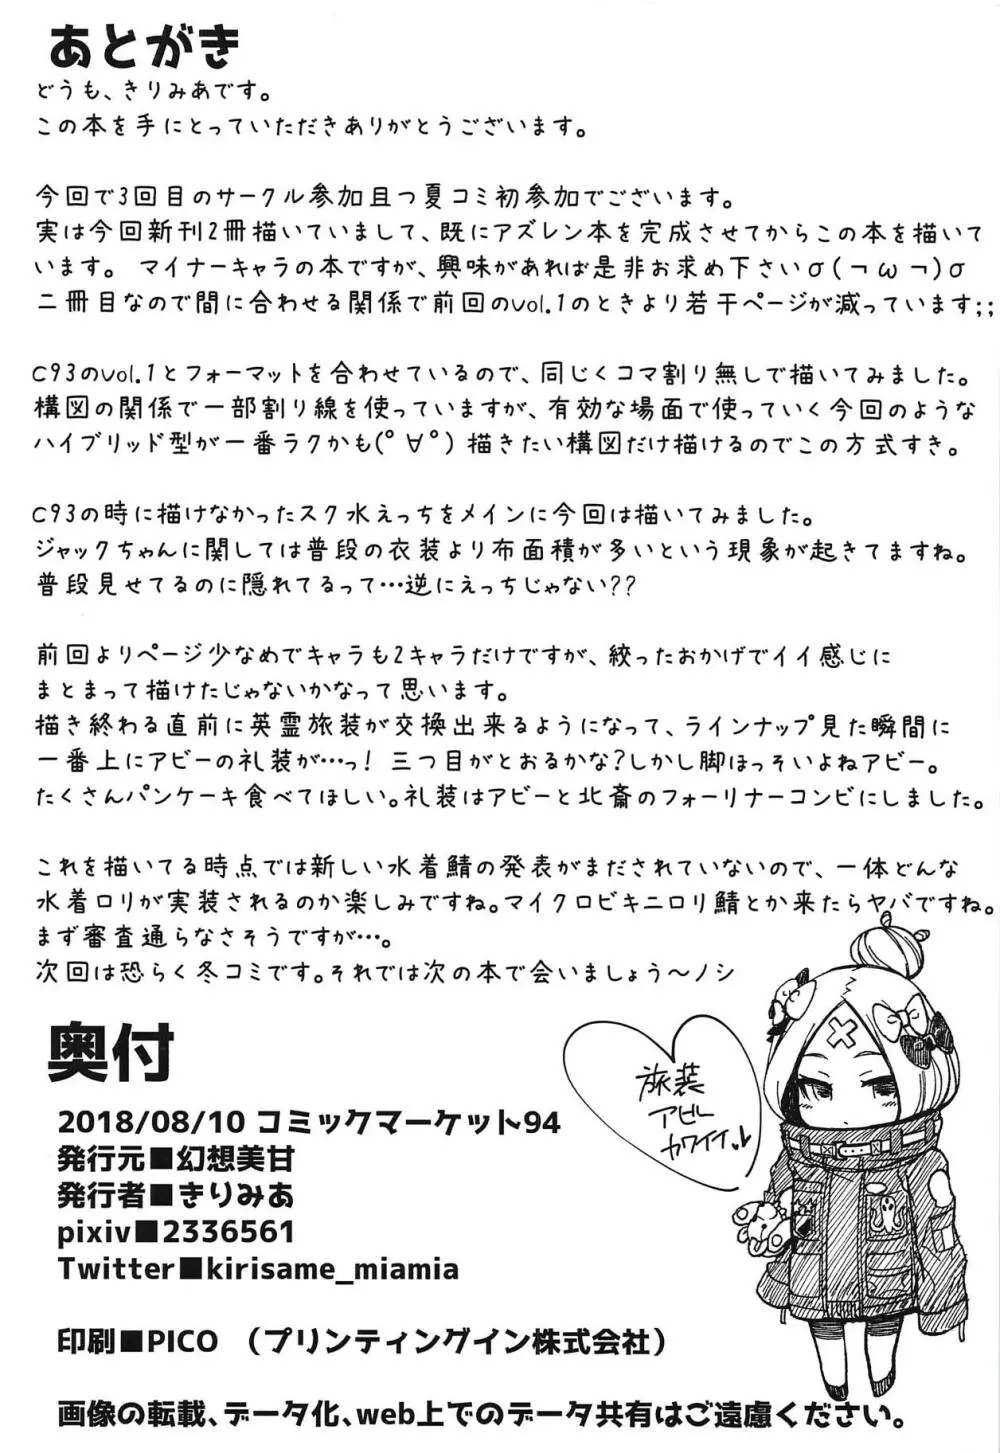 あとがき
どうも、きりみあです。
この本を手にとっていただきありがとうございます。
今回で3回目のサークル参加且つ夏コミ初参加でございます。
実は今回新刊2冊描いていまして、既にアズレン本を完成させてからこの本を描いて
います。 マイナーキャラの本ですが、興味があれば是非お求め下さいσ(¬ω¬)σ
二冊目なので間に合わせる関係で前回のvol.1のときより若干ページが減っています;;
C93のvol.1とフォーマットを合わせているので、同じくコマ割り無しで描いてみました。
構図の関係で一部割り線を使っていますが、有効な場面で使っていく今回のような
ハイブリッド型が一番ラクかも(ﾟ∀ﾟ) 描きたい構図だけ描けるのでこの方式すき。
C93の時に描けなかったスク水えっちをメインに今回は描いてみました。
ジャックちゃんに関しては普段の衣装より布面積が多いという現象が起きてますね。
普段見せてるのに隠れてるって…逆にえっちじゃない??
前回よりページ少なめでキャラも2キャラだけですが、絞ったおかげでイイ感じに
まとまって描けたじゃないかなって思います。
描き終わる直前に英霊旅装が交換出来るようになって、ラインナップ見た瞬間に
一番上にアビーの礼装が…っ! 三つ目がとおるかな?しかし脚ほっそいよねアビー。
たくさんパンケーキ食べてほしい。礼装はアビーと北斎のフォーリナーコンビにしました。
これを描いてる時点では新しい水着鯖の発表がまだされていないので、一体どんな
水着ロリが実装されるのか楽しみですね。マイクロビキニロリ鯖とか来たらヤバですね。
まず審査通らなさそうですが…。
次回は恐らく冬コミです。それでは次の本で会いましょう～ノシ
奥付
2018/08/10 コミックマーケット94
発行元■幻想美甘
発行者■きりみあ
pixiv■2336561
Twitter■kirisame_miamia
印刷■PICO （プリンティングイン株式会社）
画像の転載、データ化、web上でのデータ共有はご遠慮ください。
旅装
アビー
カワイイ